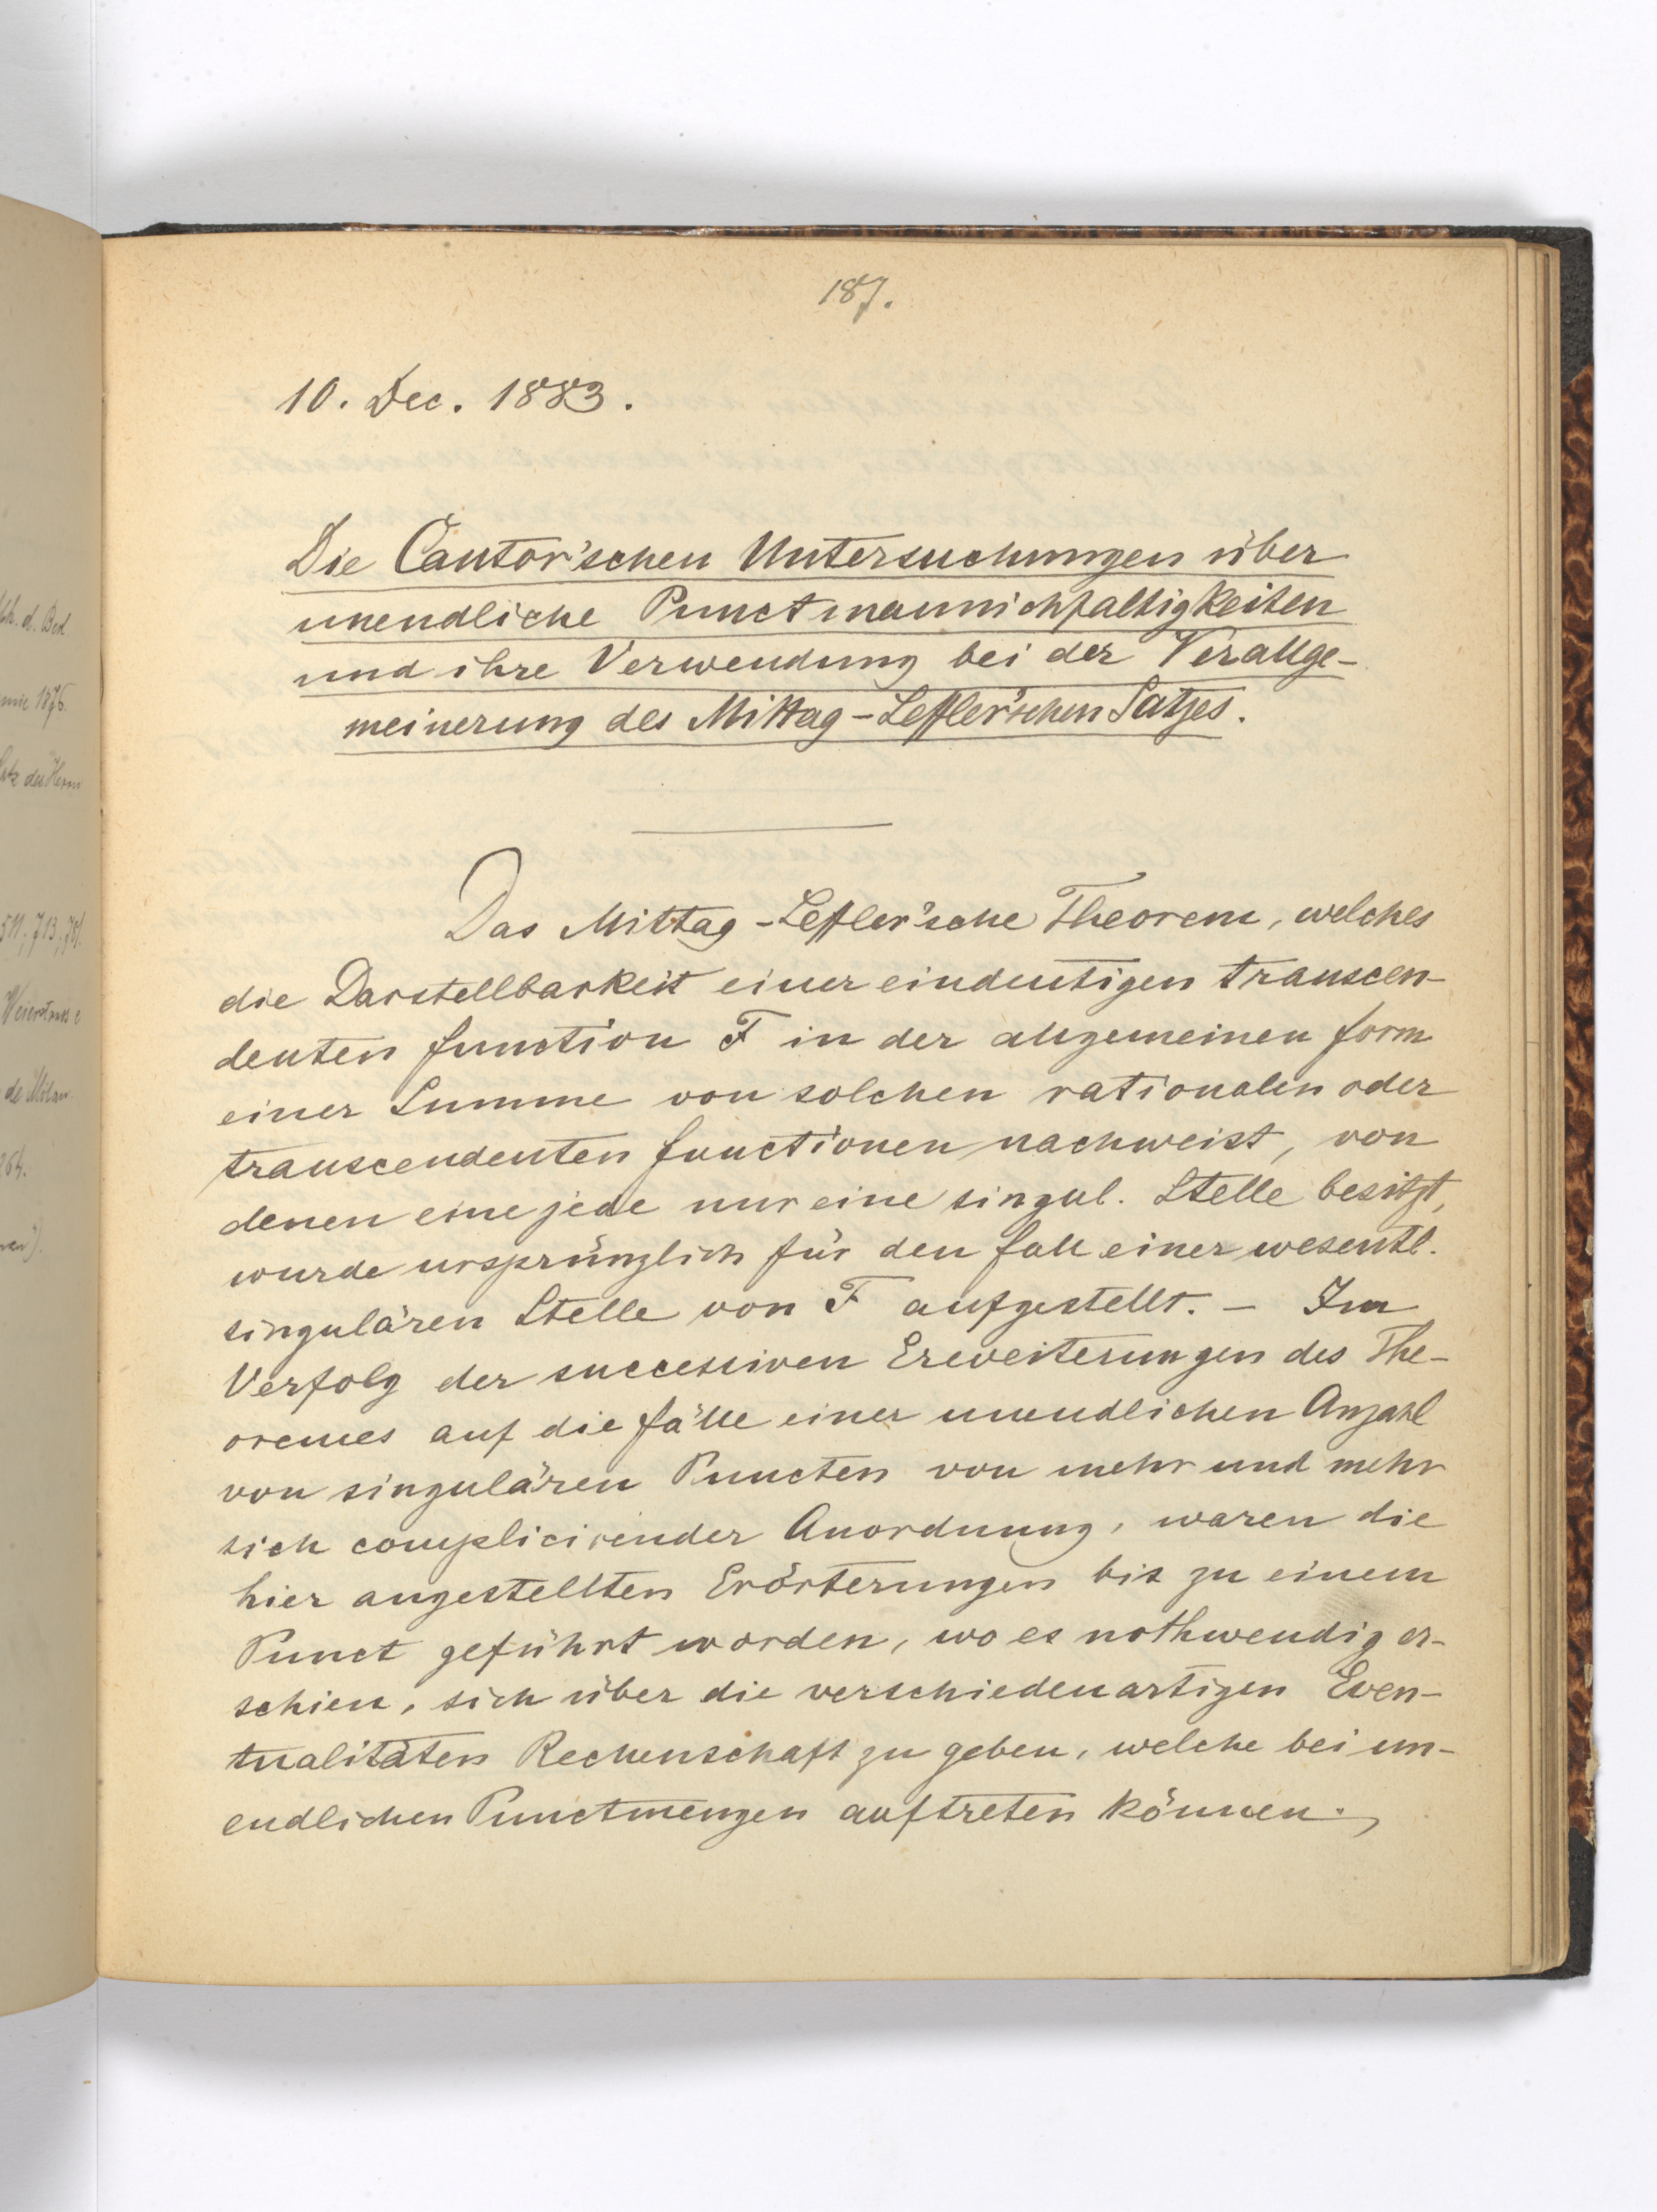 187.
10. Dec. 1883.
Die Cantor'schen Untersuchungen über
unendliche Punctmannichfaltigkeiten
und ihre Verwendung bei der Verallge-
meinerung des Mittag-Leffler'schen Satzes.
Das Mittag-Leffler'sche Theorem, welches
die Darstellbarkeit einer eindeutigen transcen-
denten Function F in der allgemeinen Form
einer Summe von solchen rationalen oder
transcendenten Functionen nachweist, von
denen eine jede nur eine singul. Stelle besitzt,
wurde ursprünglich für den Fall einer wesentl.
singulären Stelle von F aufgestellt. – Im
Verfolg der successiven Erweiterungen des The-
oremes auf die Fälle einer unendlichen Anzahl
von singulären Puncten von mehr und mehr
sich complicirender Anordnung, waren die
hier angestellten Erörterungen bis zu einem
Punct geführt worden, wo es nothwendig er-
schien, sich über die verschiedenartigen Even-
tualitäten Rechenschaft zu geben, welche bei un-
endlichen Punctmengen auftreten können.
d. Bed.
1876.
des Herrn
511; 713;
Weierstrass
de
264.